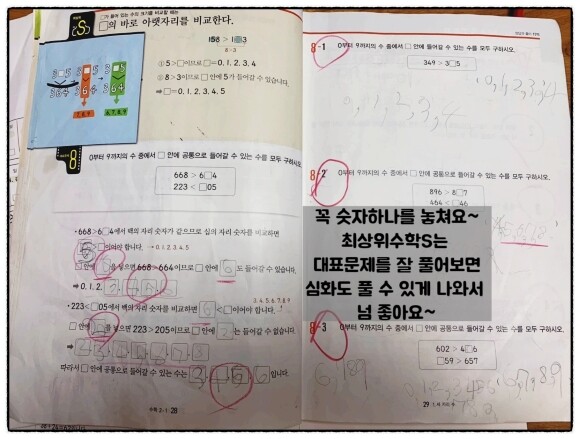 □가 들어 있는 수의 크기를 비교할 때는
□의 바로 아랫자리를 비교한다.
158 > 1□3
8>3
① 5>□이므로 □= 0, 1, 2, 3, 4
② 8>3이므로 □ 안에 5가 들어갈 수 있습니다.
⇒ □= 0, 1, 2, 3, 4, 5
3□5
364
7, 8, 9
6, 7, 8, 9
대표문제
8
0부터 9까지의 수 중에서 □ 안에 공통으로 들어갈 수 있는 수를 모두 구하시오.
668 > 6□4
223 < □05
• 668 > 6□4에서 백의 자리 숫자가 같으므로 십의 자리 숫자를 비교하면
이어야 합니다. → 0, 1, 2, 3, 4, 5
□ 안에 6을 넣으면 668 > 664이므로 □ 안에 6도 들어갈 수 있습니다.
⇒ 0, 1, 2, 3, 4, 5, 6
3, 4, 5, 6, 7, 8, 9
• 223 < □05에서 백의 자리 숫자를 비교하면 2 < □이어야 합니다.
□ 안에 2를 넣으면 223 > 205이므로 □ 안에 2는 들어갈 수 없습니다.
따라서 □ 안에 공통으로 들어갈 수 있는 수는 3, 4, 5, 6입니다.
수학 2-1 28
8-1
0부터 9까지의 수 중에서 □ 안에 들어갈 수 있는 수를 모두 구하시오.
349 > 3□5
0, 1, 2, 3, 4
0, 1, 2, 3, 4
8-2
0부터 9까지의 수 중에서 □ 안에 공통으로 들어갈 수 있는 수를 모두 구하시오.
896 > 8□7
464 < □46
꼭 숫자하나를 놓쳐요~
최상위수학S는
대표문제를 잘 풀어보면
심화도 풀 수 있게 나와서
넘 좋아요~
8-3
0부터 9까지의 수 중에서 □ 안에 공통으로 들어갈 수 있는 수를 모두 구하시오.
602 > 4□6
□59 > 657
6, 7, 8, 9
29